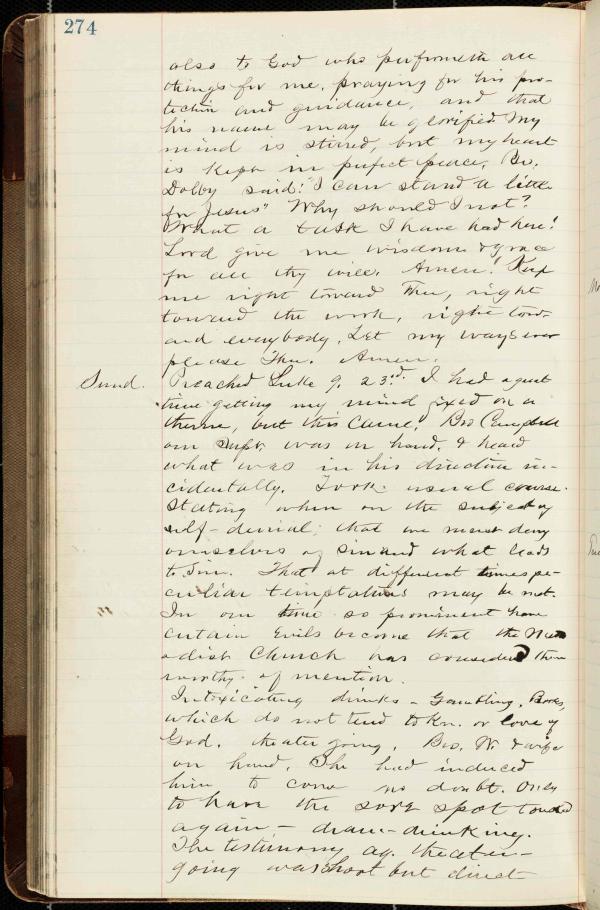 274
also to God who performeth all
things for me, praying for his pro-
tection and guidance, and that
his name may be glorified. My
mind is stirred, but my heart
is kept in perfect peace. Bro.
Dolby said: "I can stand a little
for Jesus" Why should I not?
What a task I have had here!
Lord give me wisdom & grace
for all thy will. Amen! Keep
me right toward Thee, right
toward the work, right tow-
ard everybody. Let my ways ever
please Thee. Amen.
Sund. Preached Luke 9. 23rd. I had a great
time getting my mind fixed on a
theme, but this came! Bro Campbell
our Supt. was on hand, & heard
what was in his direction in-
cidentally. Took usual course.
Stating when on the subject of
self-denial; that we must deny
ourselves of sin and what leads
to Sin. That at different times pe-
culiar temptations may be met.
In our time so prominent have
certain Evils become that the Meth
odist Church has considered them
worthy of mention.
Intoxicating drinks - Gambling, Books,
which do not tend to Kn. or love of
God, theater going. Bro. W. & wife
on hand. She had induced
him to come no doubt. Only
to have the sore spot touched
again - dram-drinking.
The testimony ag. theater-
going was short but direct